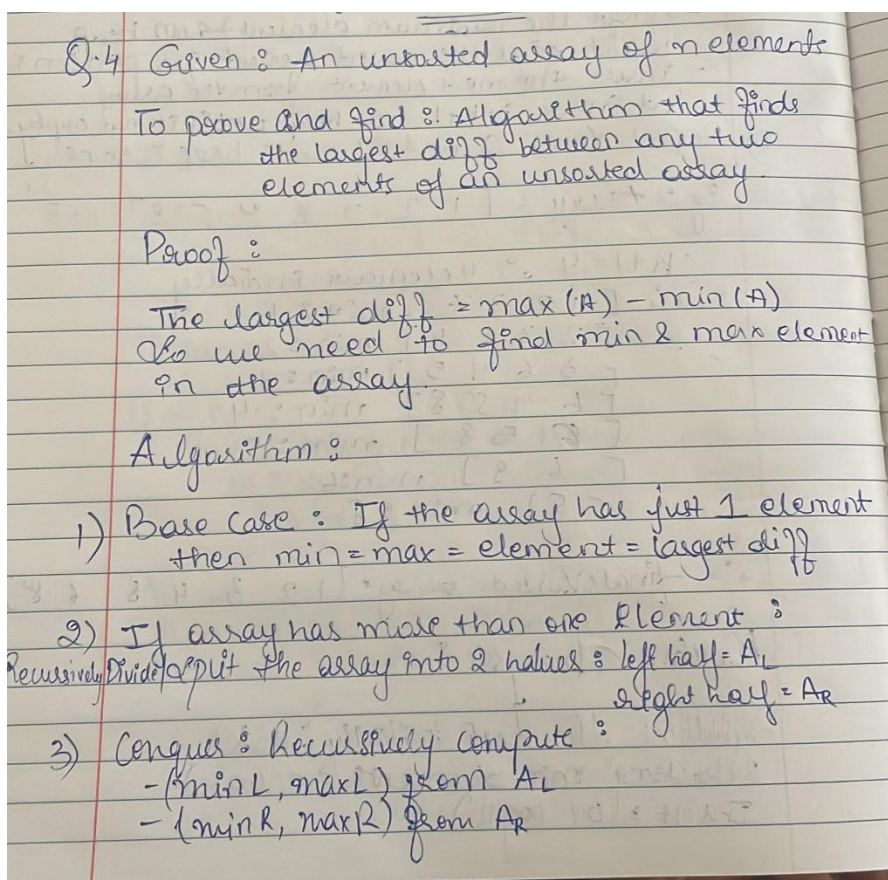 Q.4 Given : An unsorted array of n elements
To prove and find : Algorithm that finds
the largest diff between any two
elements of an unsorted array.
Proof :
The largest diff = max (A) - min (A)
So we need to find min & max element
in the array.
Algorithm :
1) Base Case : If the array has just 1 element
then min = max = element = largest diff
2) If array has more than one element :
Recursively Divide/split the array into 2 halves : left half = AL
right half = AR
3) Conquer : Recursively Compute :
- (minL, maxL) from AL
- (minR, maxR) from AR